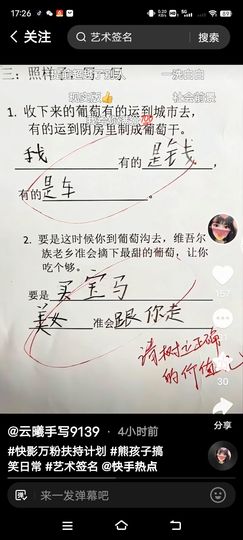 17:26
关注
艺术签名
搜索
三：照样子，写一写
一洗白白
现实版
社会前景
1. 收下来的葡萄有的运到城市去，
有的运到阴房里制成葡萄干。
我有的是钱，
有的是车。
2. 要是这时候你到葡萄沟去，维吾尔
族老乡准会摘下最甜的葡萄，让你
吃个够。
要是买宝马
美女准会跟你走
请树立正确
的价值
157
30
分享
@云曦手写9139 · 4小时前
#快影万粉扶持计划 #熊孩子搞
笑日常 #艺术签名 @快手热点
来一发弹幕吧